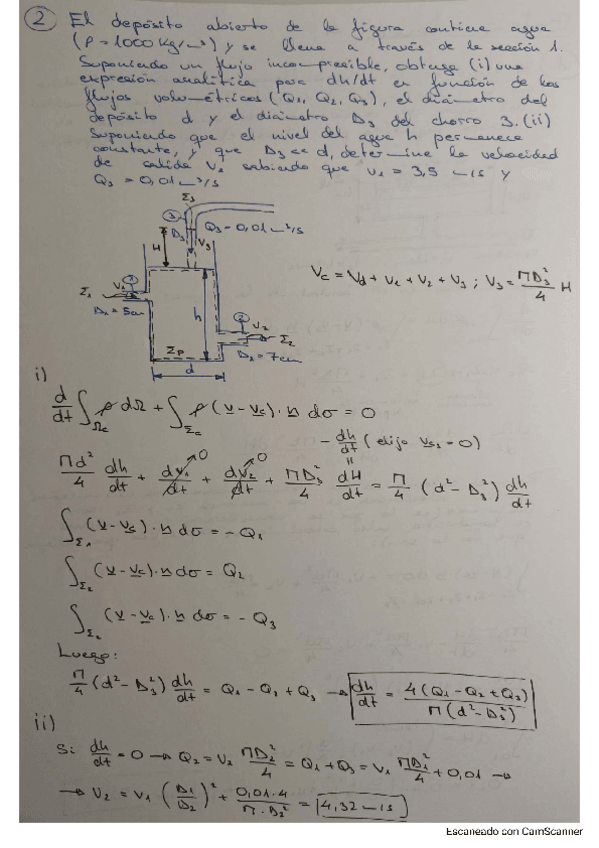 ② El depósito abierto de la figura contiene agua
(ρ = 1000 Kg/m³) y se llena a través de la sección 1.
Suponiendo un flujo incompresible, obtenga (i) una
expresión analítica para dh/dt en función de los
flujos volumétricos (Q₁, Q₂, Q₃), el diámetro del
depósito d y el diámetro D₃ del chorro 3. (ii)
Suponiendo que el nivel del agua h permanece
constante, y que D₃ << d, determine la velocidad
de salida V₂ sabiendo que v₁ = 3,5 m/s y
Q₃ = 0,01 m³/s
Σ₃
③
D₃ Q₃ = 0,01 m³/s
V₃
H
V_c = V_d + v₁ + V₂ + V₃ ; V₃ = ΠD₃²/4 H
V₁ ①
Σ₁
D₁ = 5cm
h
② V₂
Σ₂
Σp
D₂ = 7cm
d
i)
d/dt ∫_Ωc ρ dΩ + ∫_Σc ρ (v - v_c) · n dσ = 0
- dh/dt (elijo v_c₃ = 0)
Πd²/4 dh/dt + dV₁/dt→0 + dV₂/dt→0 + ΠD₃²/4 dH/dt = Π/4 (d² - D₃²) dh/dt
∫_Σ₁ (v - v_c) · n dσ = - Q₁
∫_Σ₂ (v - v_c) · n dσ = Q₂
∫_Σ₃ (v - v_c) · n dσ = - Q₃
Luego:
Π/4 (d² - D₃²) dh/dt = Q₁ - Q₂ + Q₃ → dh/dt = 4(Q₁ - Q₂ + Q₃)/Π(d² - D₃²)
ii)
Si dh/dt = 0 → Q₂ = V₂ ΠD₂²/4 = Q₁ + Q₃ = V₁ ΠD₁²/4 + 0,01 →
→ V₂ = V₁ (D₁/D₂)² + 0,01·4/Π·D₂² = 4,32 m/s
Escaneado con CamScanner